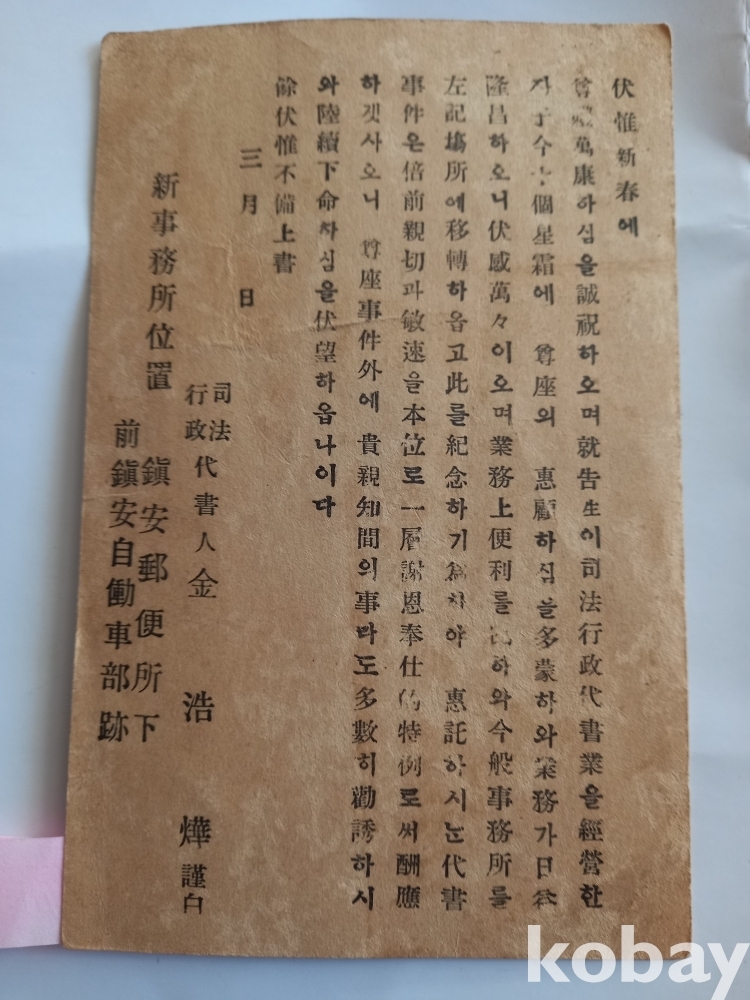 伏惟新春에
尊體萬康하심을誠祝하오며就告生이司法行政代書業을經營한
지于今 個星霜에 尊座의 惠顧하심을多蒙하와業務가日益
隆昌하오니伏感萬々이오며業務上便利를 하와今般事務所를
左記場所에移轉하옵고此를紀念하기爲하야 惠託하시는代書
事件은倍前親切과敏速을本位로一層謝恩奉仕的特例로써酬應
하겟사오니 尊座事件外에 貴親知間의事라도多數히勸誘하시
와陸續下命하심을伏望하옵나이다
餘伏惟不備上書
三月 日
司法
行政代書人金 浩 燁 謹白
新事務所位置
鎭安郵便所下
前鎭安自働車部跡
kobay